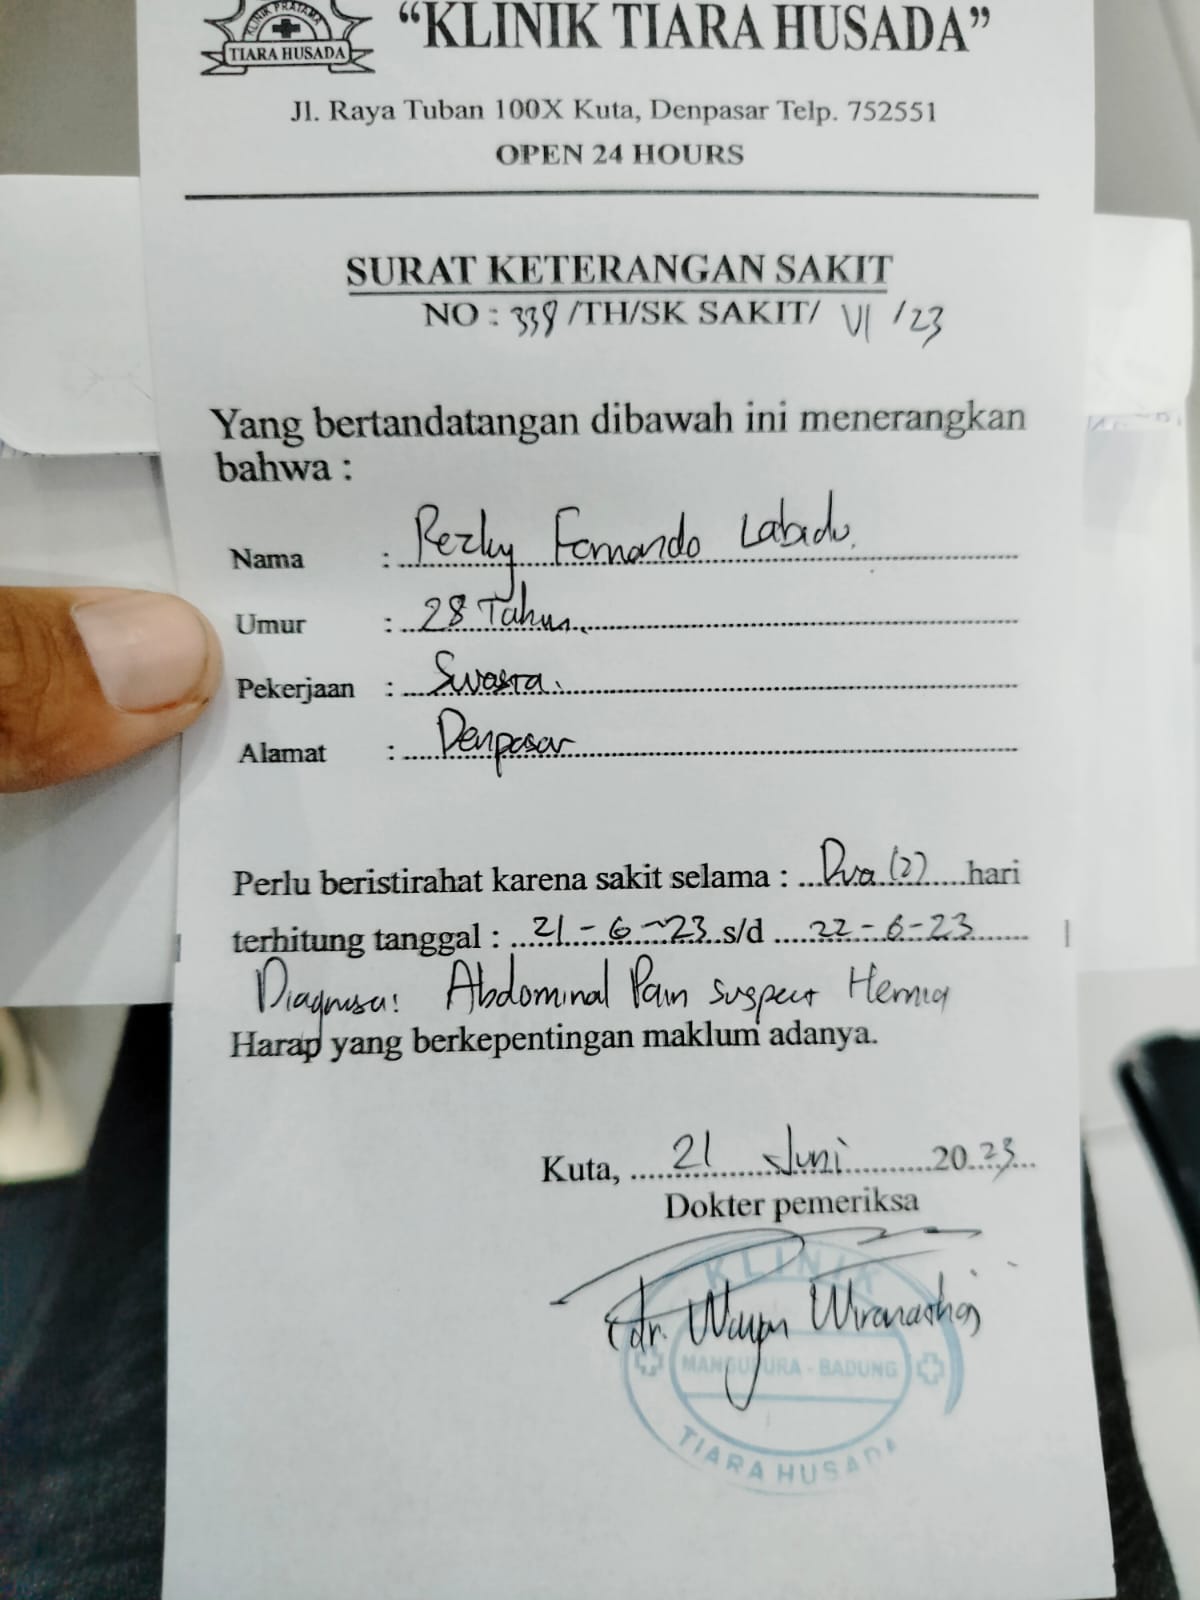 KLINIK PRATAMA
TIARA HUSADA
“KLINIK TIARA HUSADA”
Jl. Raya Tuban 100X Kuta, Denpasar Telp. 752551
OPEN 24 HOURS
SURAT KETERANGAN SAKIT
NO : 339 /TH/SK SAKIT/ VI /23
Yang bertandatangan dibawah ini menerangkan
bahwa :
Nama : Rezky Fernando Labado.
Umur : 28 Tahun.
Pekerjaan : Swasta.
Alamat : Denpasar
Perlu beristirahat karena sakit selama : Dua (2) hari
terhitung tanggal : 21-6-23 s/d 22-6-23
Diagnosa: Abdominal Pain suspect Hernia
Harap yang berkepentingan maklum adanya.
Kuta, 21 Juni 2023
Dokter pemeriksa
KLINIK
(dr. Wayan
MANGUPURA - BADUNG
TIARA HUSADA